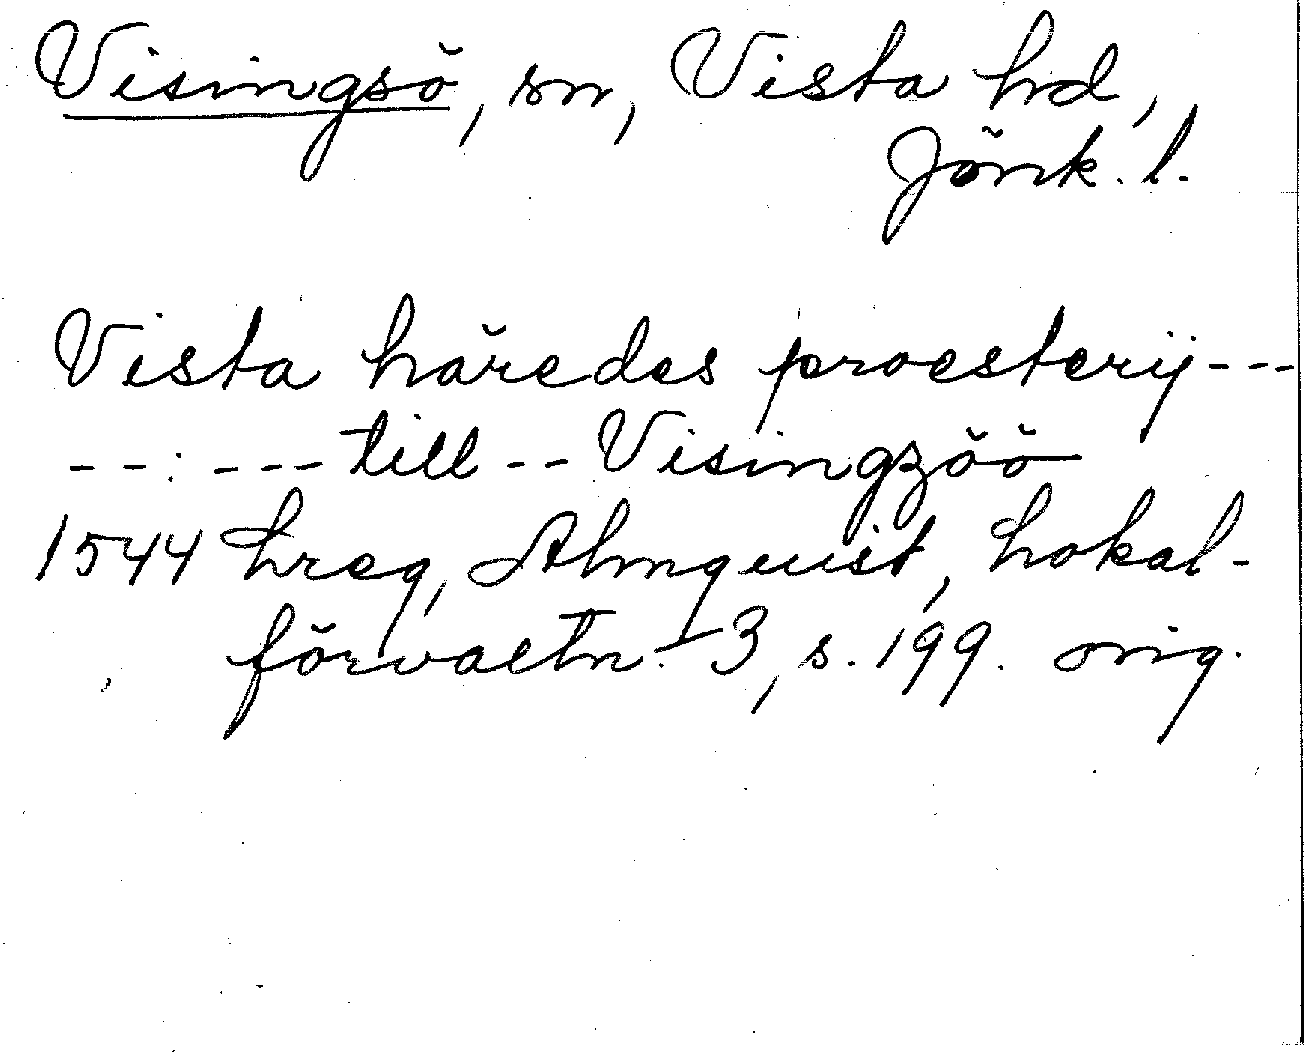 Visingsö, sn, Vista hd,
Jönk. l.
Vista häredes proesterij ---
-- : --- till -- Visingzöö
1544 hreg, Almquist, Lokal-
förvaltn. 3, s. 199. orig.